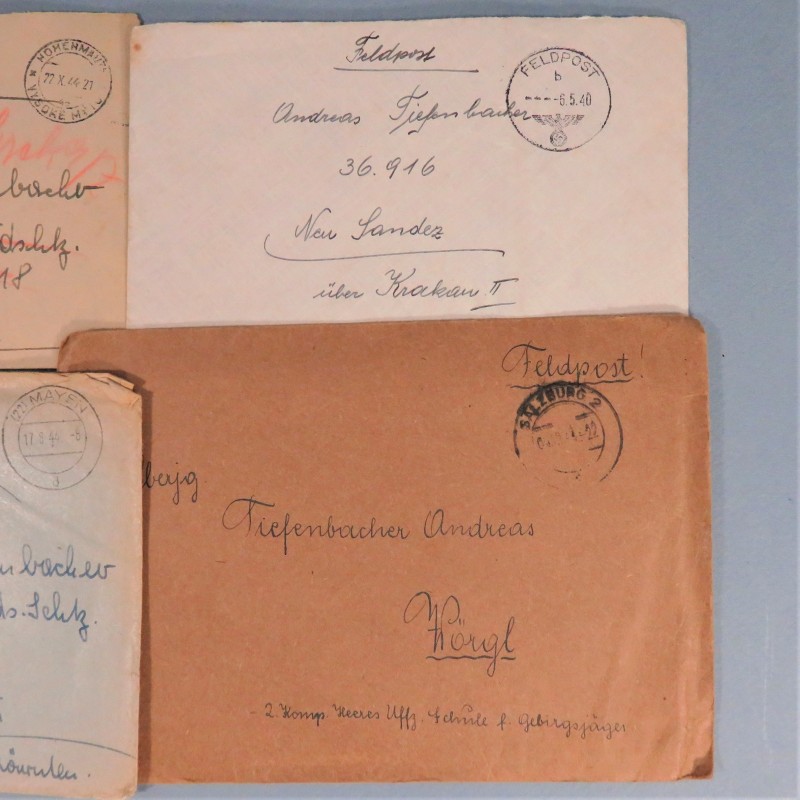 HOHENMAUTH
22.X.44-21
VYSOKE MYTO
bacher
18
Feldpost
FELDPOST
b
----6.5.40
Andreas Tiefenbacher
36.916
Neu Sandez
über Krakau II
(22) MAYEN
17.8.44.-6
bacher
Feldpost!
SALZBURG 2
Tiefenbacher Andreas
Wörgl
2. Komp. Heeres Uffz. Schule f. Gebirgsjäger